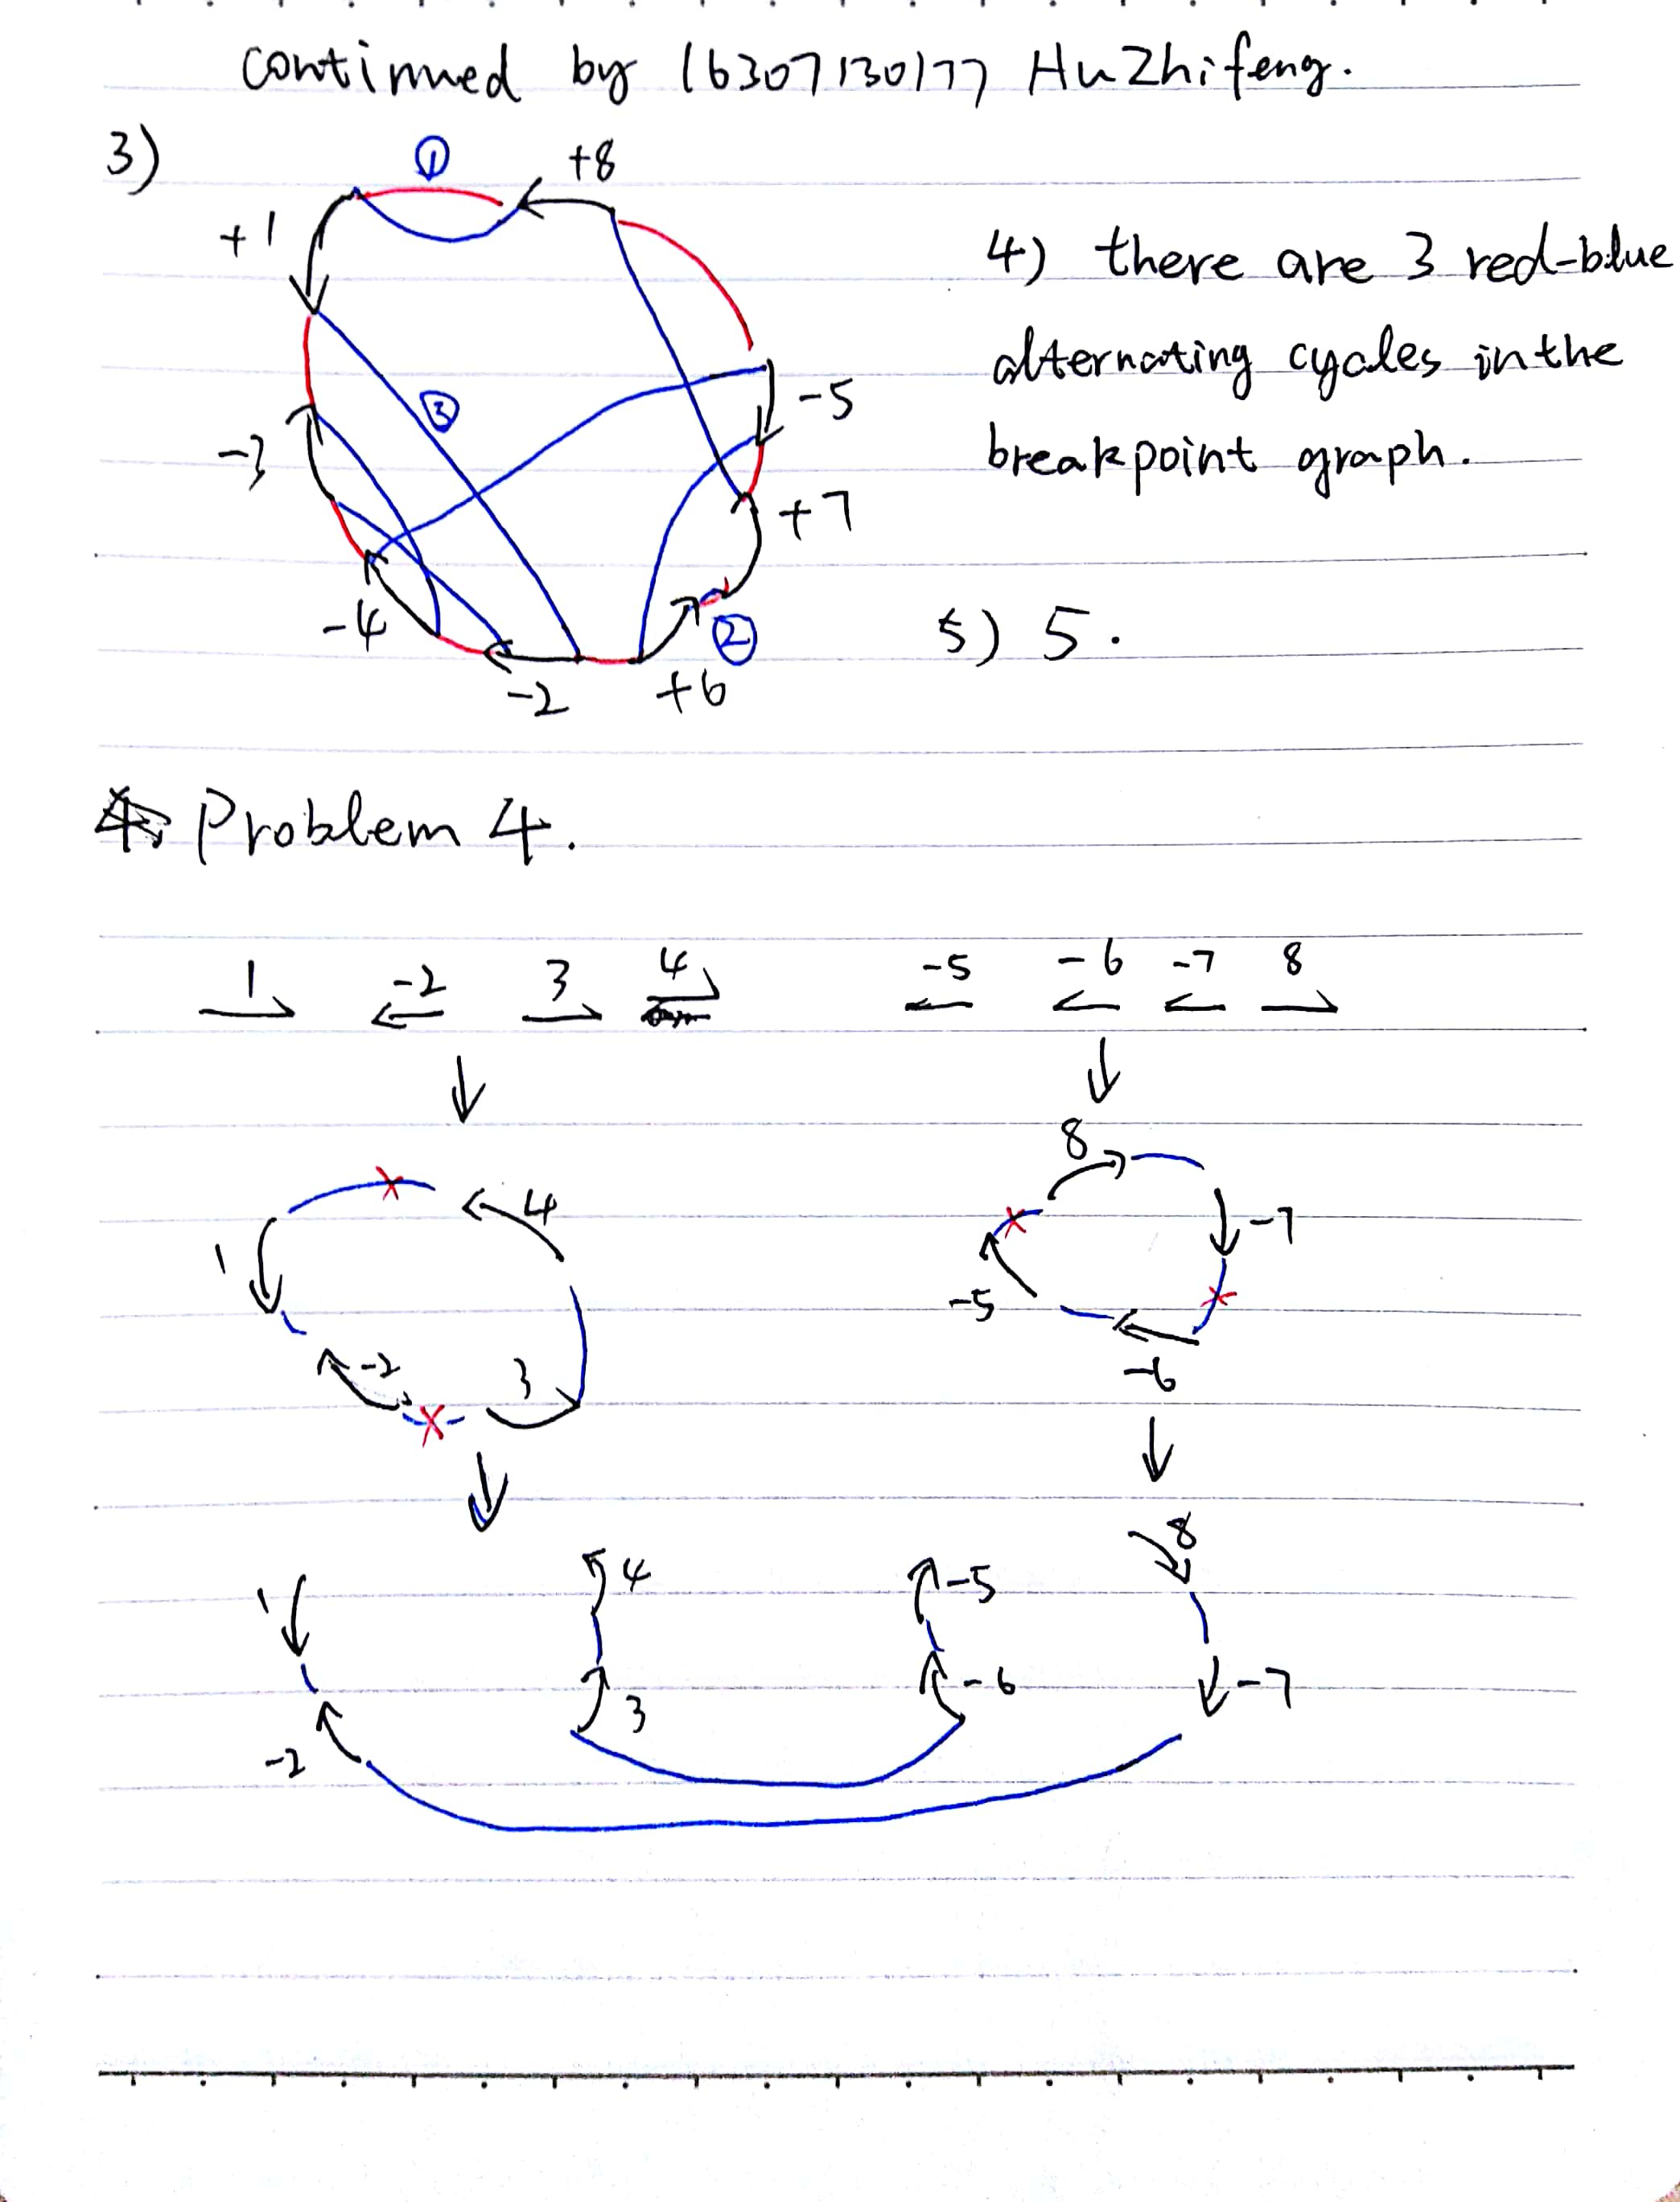 continued by 16307130177 HuZhifeng.
3)
① +8
+1
4) there are 3 red-blue
alternating cycles in the
breakpoint graph.
③ -5
-3
+7
-4 ②
5) 5.
-2 +6
Problem 4.
1 -2 3 4 -5 -6 -7 8
8
4
1 -7
-5
-2 3 -6
8
1 4 -5
3 -6 -7
-2